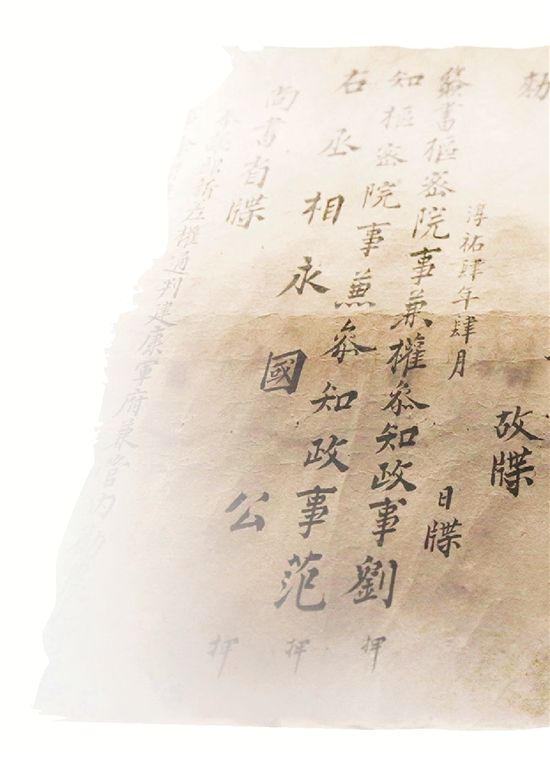 勑
故牒
淳祐肆年肆月 日牒
簽書樞密院事兼權叅知政事劉 押
知樞密院事兼叅知政事范 押
右丞相永國公 押
尚書省牒
新差權通判建康軍府兼管內勸